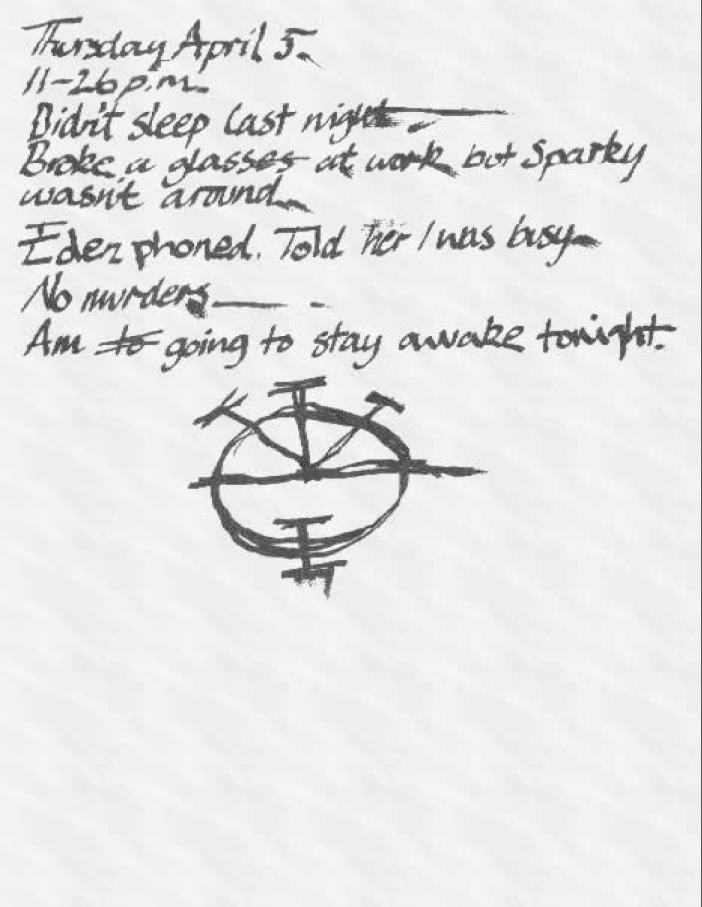 Thursday April 5.
11-26 p.m.
Didn't sleep last night.
Broke a glasses at work but Sparky
wasn't around.
Eden phoned. Told her I was busy
No murders
Am to going to stay awake tonight.